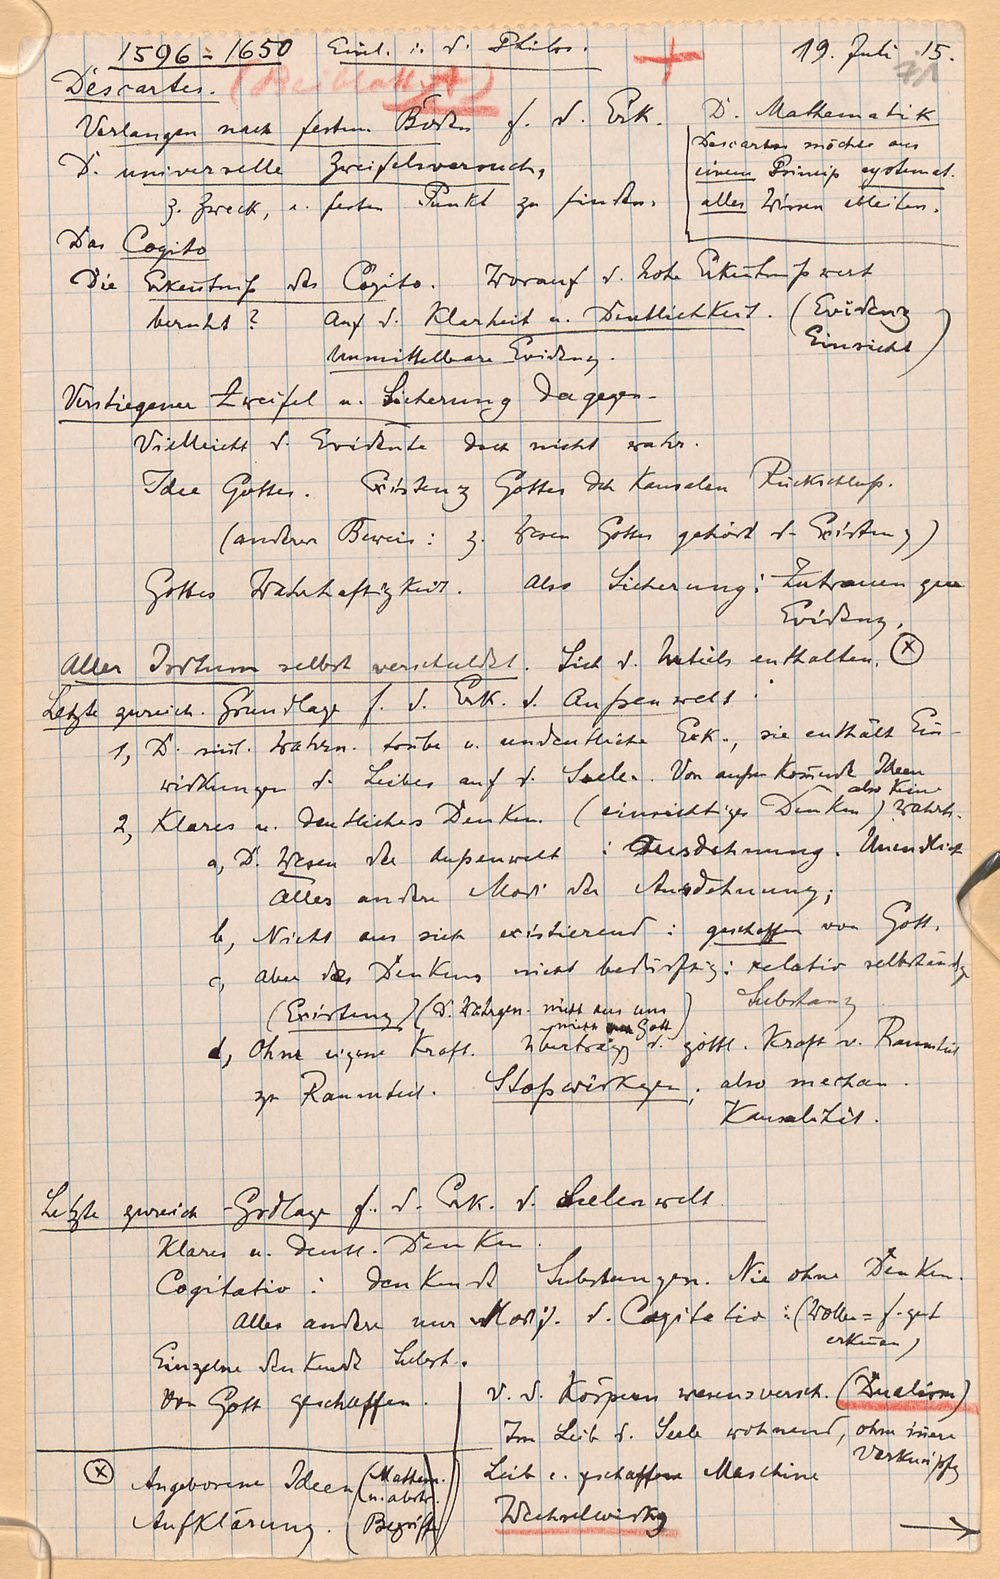 1596 - 1650 Einl. i. d. Philos. 19. Juli 15.
Descartes. (Beiblatt A)
Verlangen nach festem Boden f. d. Erk. D. Mathematik
D. universelle Zweifelsversuch, Descartes möchte aus
einem Prinzip systemat.
z. Zweck, e. festen Punkt zu finden. alles Wissen ableiten.
Das Cogito
Die Erkentniß des Cogito. Worauf d. hohe Erkentnißwert
beruht? Auf d. Klarheit u. Deutlichkeit. (Evidenz
Einsicht)
Unmittelbare Evidenz.
Verstiegener Zweifel u. Sicherung dagegen
Vielleicht d. Evidente doch nicht wahr.
Idee Gottes. Existenz Gottes dch kausalen Rückschluß.
(anderer Beweis: z. Wesen Gottes gehört d. Existenz)
Gottes Wahrhaftigkeit. Also Sicherung: Zutrauen zur
Evidenz.
Aller Irrtum selbst verschuldet. Sich d. Urteils enthalten. (x)
Letzte zureich. Grundlage f. d. Erk. d. Außenwelt:
1, D. sinl. Wahrn. trübe u. undeutliche Erk., sie enthält Ein-
wirkungen d. Leibes auf d. Seele. Von außen komende Ideen
also keine
2, Klares u. deutliches Denken (einsichtiges Denken) Wahrh.
a, D. Wesen der Außenwelt: Ausdehnung. Unendlich
Alles andere Modi der Ausdehnung;
b, Nicht aus sich existierend: geschaffen von Gott.
c, aber des Denkens nicht bedürftig: relativ selbständige
(Existenz) (D. Wahrgen. nicht aus uns Substanz
nicht Gott)
d, Ohne eigene Kraft. Übertragg d. göttl. Kraft v. Raumteil
zu Raumteil. Stoßwirkgen, also mechan.
Kausalität.
Letzte zureich Grdlage f. d. Erk. d. Seelenwelt
Klares u. deutl. Denken.
Cogitatio: denkende Substanzen. Nie ohne Denken.
Alles andere nur Modif. d. Cogitatio: (Wollen = f. gut
erkenen)
Einzelne denkende Subst.
Von Gott geschaffen. v. d. Körpern wesensversch. (Dualism)
Im Leib d. Seele wohnend, ohne inere
Verknüpfg
(x) Angeborene Ideen (Mathem. Leib e. geschaffene Maschine
u. abstr.
Aufklärung. Begriffe) Wechselwirkg